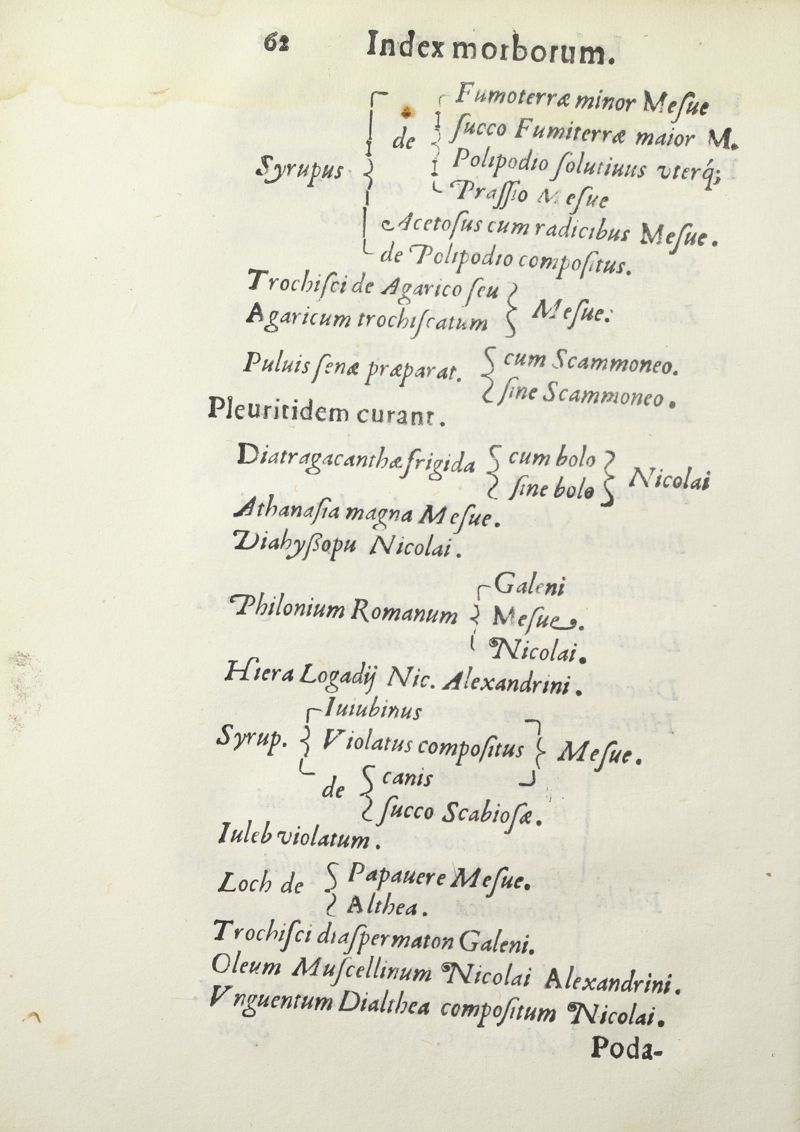 62 Index morborum.
Fumoterræ minor Meſue
de ſucco Fumiterræ maior M.
Polipodio ſolutiuus vterq́;
Syrupus
Praſſio Meſue
Acetoſus cum radicibus Meſue.
de Polipodio compoſitus.
Trochiſci de Agarico ſeu
Agaricum trochiſcatum } Meſue.
Puluis ſenæ præparat. { cum Scammoneo.
ſine Scammoneo.
Pleuritidem curant.
Diatragacanthæ frigida { cum bolo } Nicolai
ſine bolo
Athanaſia magna Meſue.
Diahyßopu Nicolai.
Galeni
Philonium Romanum { Meſue.
Nicolai.
Hiera Logadij Nic. Alexandrini.
Iuiubinus
Syrup. { Violatus compoſitus } Meſue.
de { canis
ſucco Scabioſæ.
Iuleb violatum.
Loch de { Papauere Meſue.
Althea.
Trochiſci diaſpermaton Galeni.
Oleum Muſcellinum Nicolai Alexandrini.
Vnguentum Dialthea compoſitum Nicolai.
Poda-